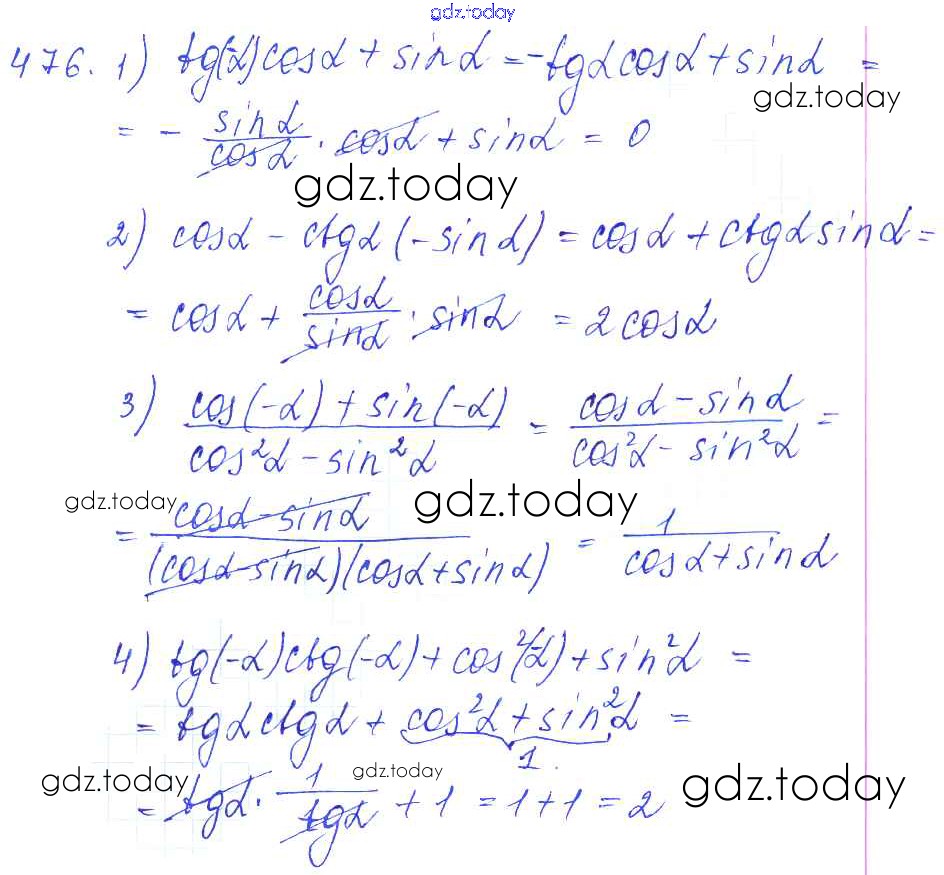 gdz.today
476. 1) tg(-α)cosα + sinα = -tgα cosα + sinα =
gdz.today
= - sinα/cosα · cosα + sinα = 0
gdz.today
2) cosα - ctgα(-sinα) = cosα + ctgα sinα =
= cosα + cosα/sinα · sinα = 2cosα
3) (cos(-α) + sin(-α))/(cos²α - sin²α) = (cosα - sinα)/(cos²α - sin²α) =
gdz.today gdz.today
= (cosα - sinα)/((cosα - sinα)(cosα + sinα)) = 1/(cosα + sinα)
4) tg(-α)ctg(-α) + cos²(-α) + sin²α =
= tgα ctgα + cos²α + sin²α =
1.
gdz.today gdz.today gdz.today
= tgα · 1/tgα + 1 = 1 + 1 = 2